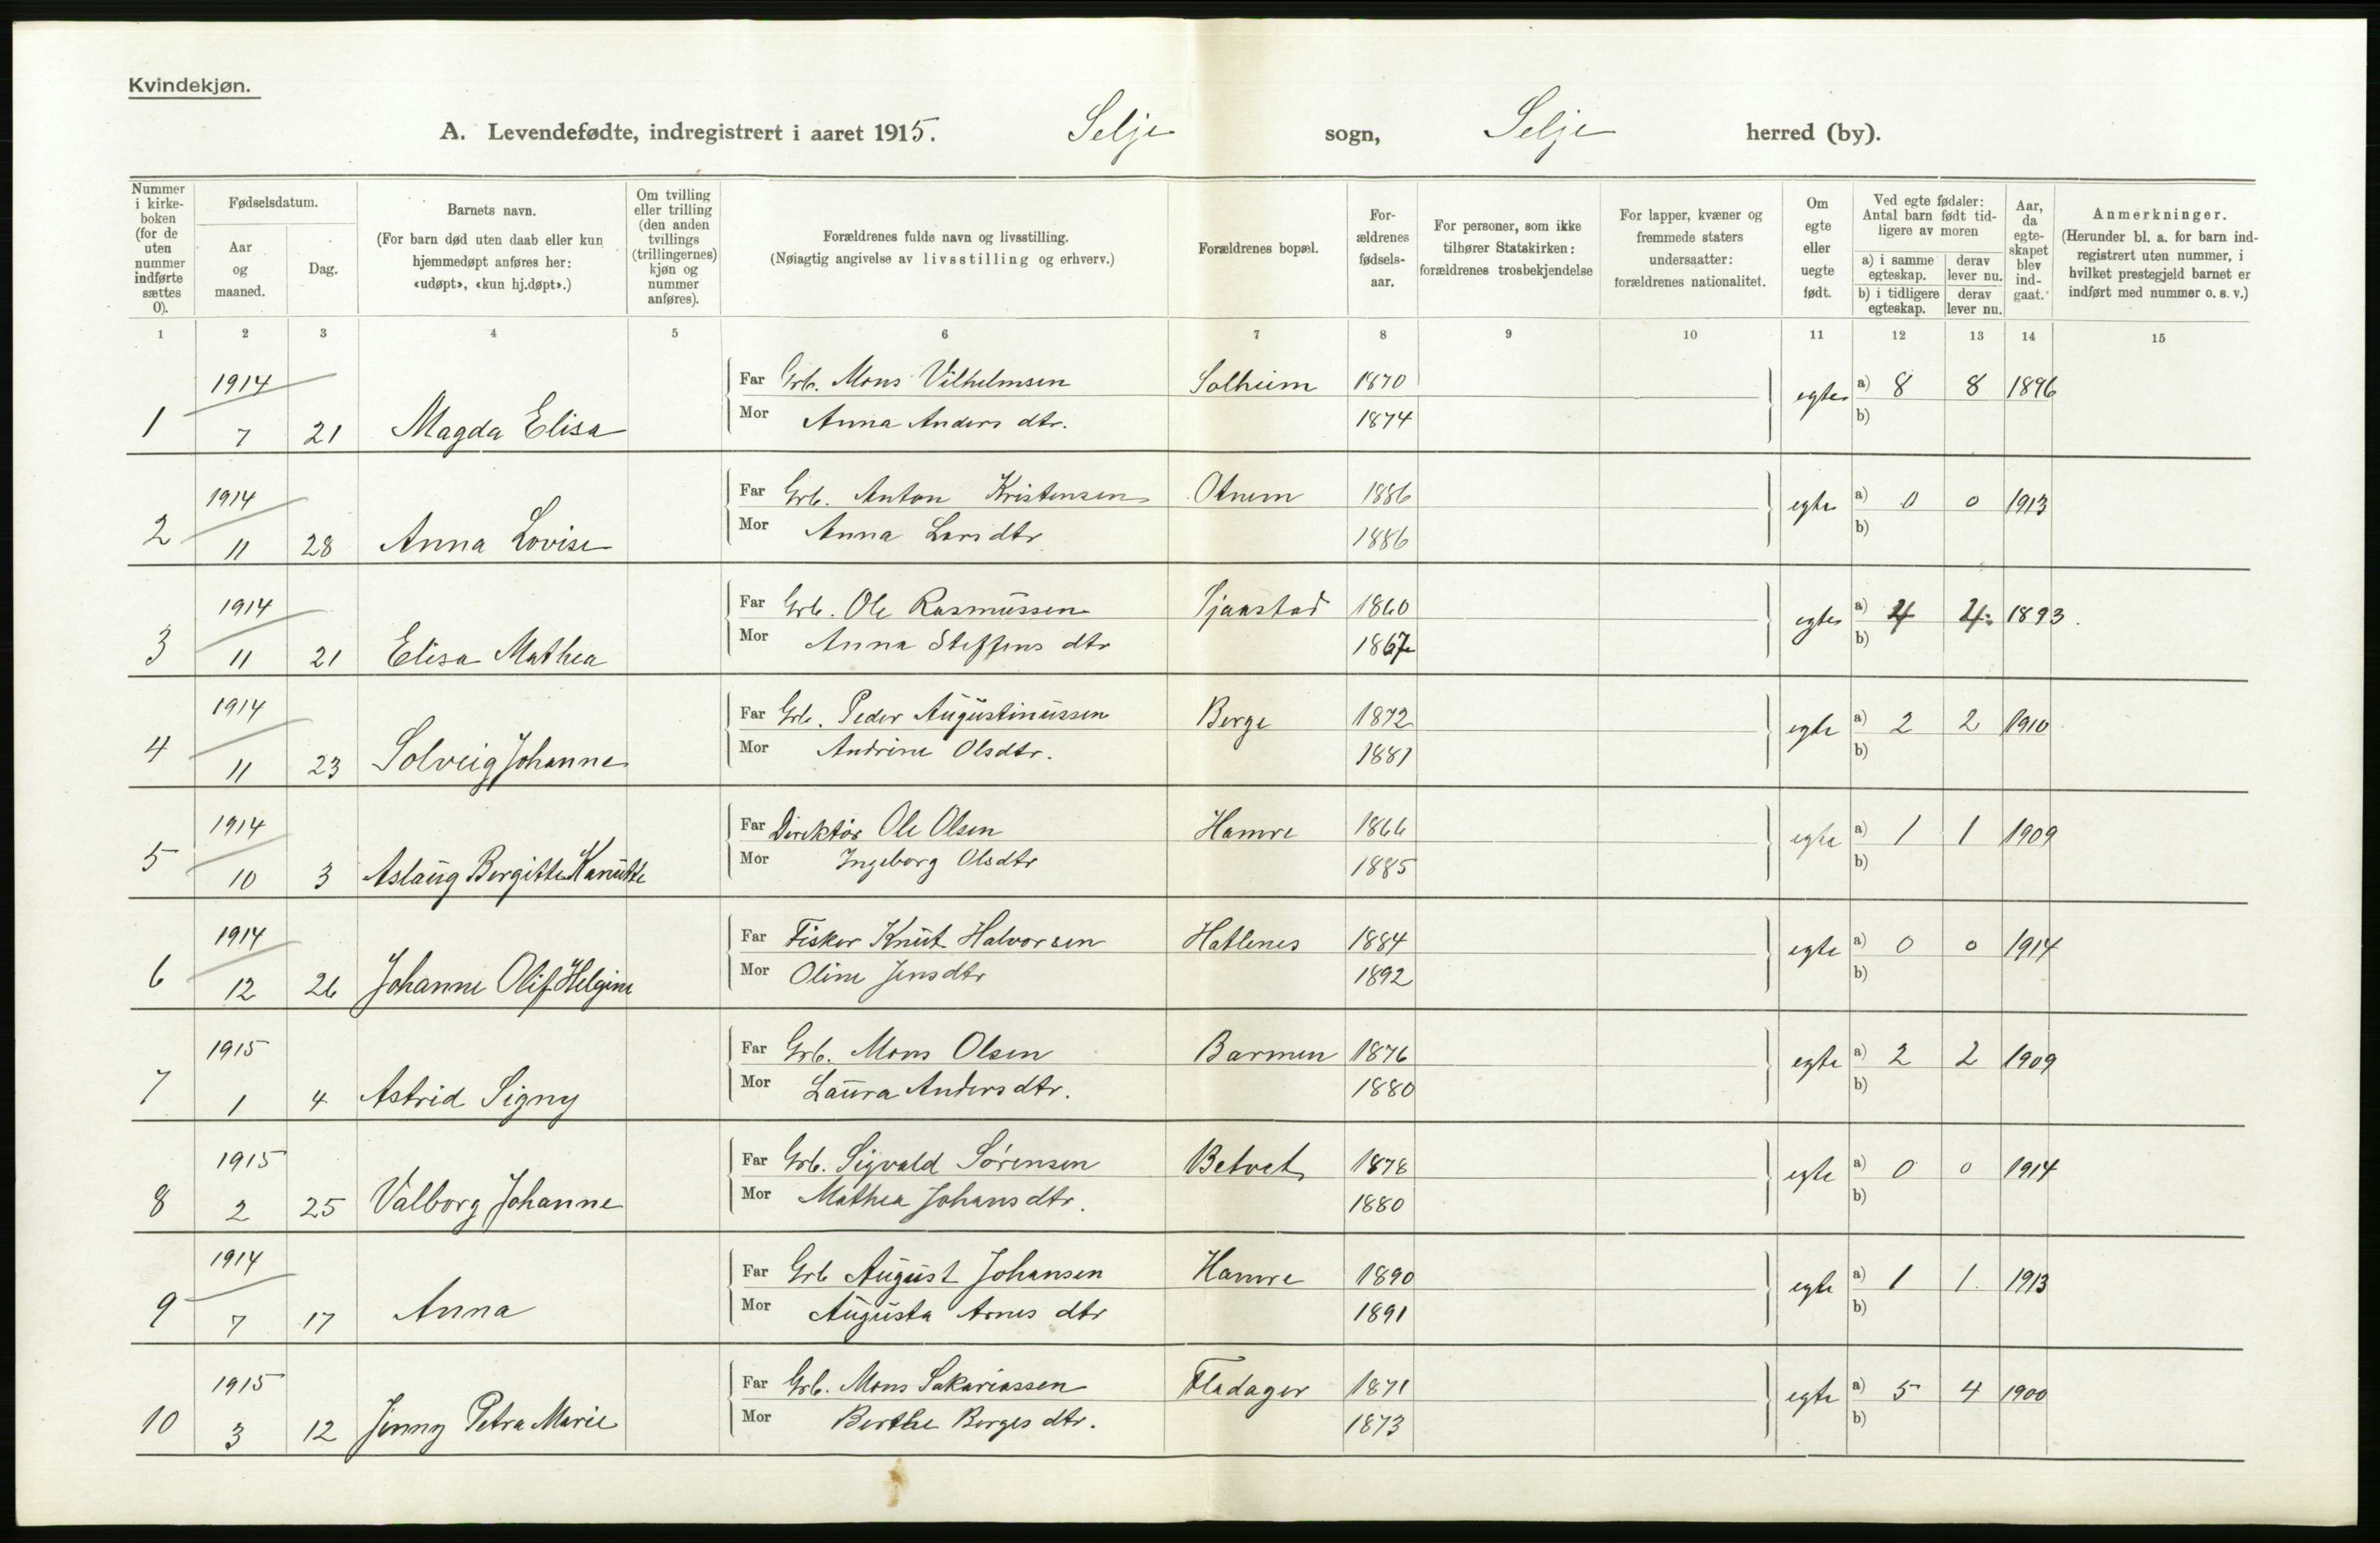 Kvindekjøn.
A. Levendefødte, indregistrert i aaret 1915. Selje sogn, Selje herred (by).
Nummer i kirke-boken (for de uten nummer indførte sættes 0).
Fødselsdatum.
Aar og maaned.
Dag.
Barnets navn.
(For barn død uten daab eller kun hjemmedøpt anføres her: «udøpt», «kun hj.døpt».)
Om tvilling eller trilling (den anden tvillings (trillingernes) kjøn og nummer anføres).
Forældrenes fulde navn og livsstilling.
(Nøiagtig angivelse av livsstilling og erhverv.)
Forældrenes bopæl.
For-ældrenes fødsels-aar.
For personer, som ikke tilhører Statskirken: forældrenes trosbekjendelse
For lapper, kvæner og fremmede staters undersaatter: forældrenes nationalitet.
Om egte eller uegte født.
Ved egte fødsler: Antal barn født tid-ligere av moren
a) i samme egteskap.
derav lever nu.
b) i tidligere egteskap.
derav lever nu.
Aar, da egte-skapet blev ind-gaat.
Anmerkninger.
(Herunder bl. a. for barn ind-registrert uten nummer, i hvilket prestegjeld barnet er indført med nummer o. s. v.)
1 2 3 4 5 6 7 8 9 10 11 12 13 14 15
1914 Far Grb. Mons Vilhelmsen Solheim 1870 egte a) 8 8 1896
1 7 21 Magda Elisa Mor Anna Anders dtr. 1874 b)
1914 Far Grb. Anton Kristensen Otnem 1886 egte a) 0 0 1913
2 11 28 Anna Lovise Mor Anna Lars dtr 1886 b)
1914 Far Grb. Ole Rasmussen Sjaastad 1860 egte a) 4 4 1893.
3 11 21 Elisa Mathea Mor Anna Steffens dtr 1867 b)
1914 Far Grb. Peder Augustinussen Berge 1872 egte a) 2 2 1910
4 11 23 Solveig Johanne Mor Andrine Olsdtr. 1881 b)
1914 Far Direktør Ole Olsen Hamre 1866 egte a) 1 1 1909
5 10 3 Aslaug Bergitte Kanutte Mor Ingeborg Olsdtr 1885 b)
1914 Far Fisker Knut Halvorsen Hatlenes 1884 egte a) 0 0 1914
6 12 26 Johanne Olif Helgine Mor Oline Jensdtr 1892 b)
1915 Far Grb. Mons Olsen Barmen 1876 egte a) 2 2 1909
7 1 4 Astrid Signy Mor Laura Anders dtr. 1880 b)
1915 Far Grb. Sigvald Sørensen Betvet 1878 egte a) 0 0 1914
8 2 25 Valborg Johanne Mor Mathea Johans dtr. 1880 b)
1914 Far Grb August Johansen Hamre 1890 egte a) 1 1. 1913
9 7 17 Anna Mor Augusta Arnes dtr 1891 b)
1915 Far Grb. Mons Sakariassen Fladager 1871 egte a) 5 4 1900
10 3 12 Jenny Petra Marie Mor Berthe Berges dtr. 1873 b)